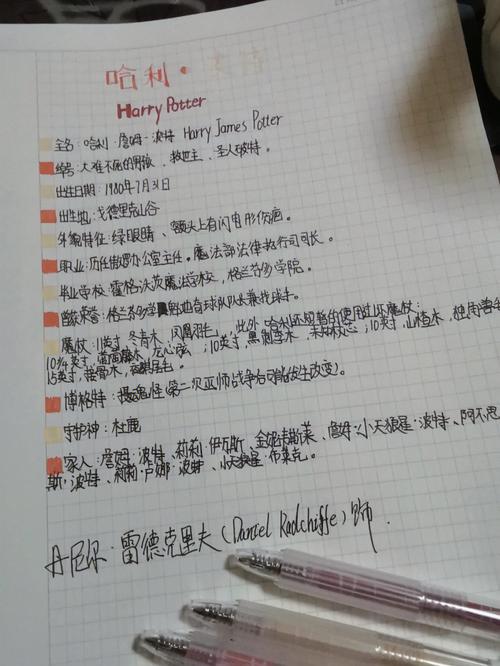 哈利·波特
Harry Potter
全名：哈利·詹姆·波特 Harry James Potter
绰号：大难不死的男孩、救世主、圣人破特。
出生日期：1980年7月31日
出生地：戈德里克山谷
外貌特征：绿眼睛、额头上有闪电形伤疤。
职业：历任傲罗办公室主任。魔法部法律执行司司长。
毕业学校：霍格沃茨魔法学校，格兰芬多学院。
格兰芬多学院魁地奇球队队长兼找球手。
魔杖：11英寸，冬青木，凤凰羽毛。此外，哈利还短暂的使用过坏魔杖：
10¾英寸，葡萄藤木，龙心弦；10英寸，黑刺李木，；10英寸，山楂木，独角兽
15英寸，接骨木，夜骐尾毛。
博格特：摄魂怪（第二次巫师战争后可能发生改变）。
守护神：牡鹿
家人：詹姆·波特、莉莉·伊万斯、金妮·韦斯莱、詹姆·小天狼星·波特、阿不思
斯·波特、莉莉·卢娜·波特、小天狼星·布莱克。
丹尼尔·雷德克里夫（Daniel Radcliffe）饰